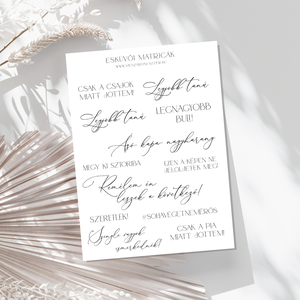 ESKÜVŐI MATRICÁK
CSAK A CSAJOK
MIATT JÖTTEM!
Legjobb tanú
Legjobb tanú
LEGNAGYOBB
BULI!
Ásó kapa nagyharang
MEGY KI SZTORIBA
EZEN A KÉPEN NE
JELÖLJETEK MEG!
Remélem én
leszek a következő!
SZERETLEK!
#SOHAVÉGETNEMÉRŐS
Single vagyok
ismerkednék!
CSAK A PIA
MIATT JÖTTEM!